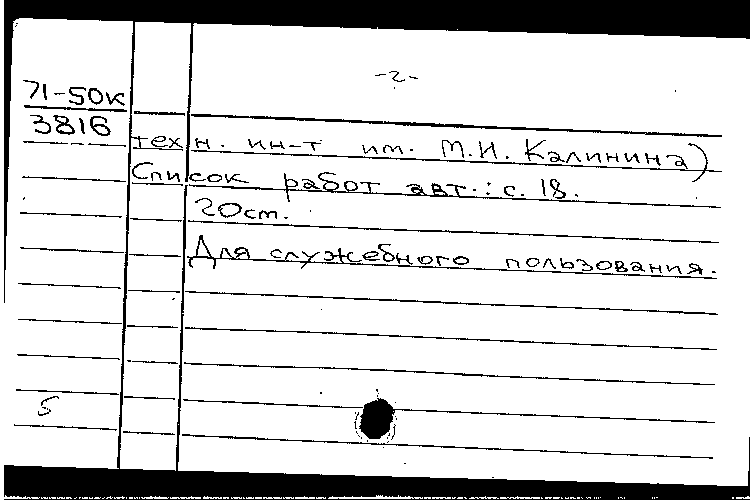 -2-
71-50к
3816
техн. ин-т им. М.И. Калинина)
Список работ авт.: с. 18.
20см.
Для служебного пользования.
5